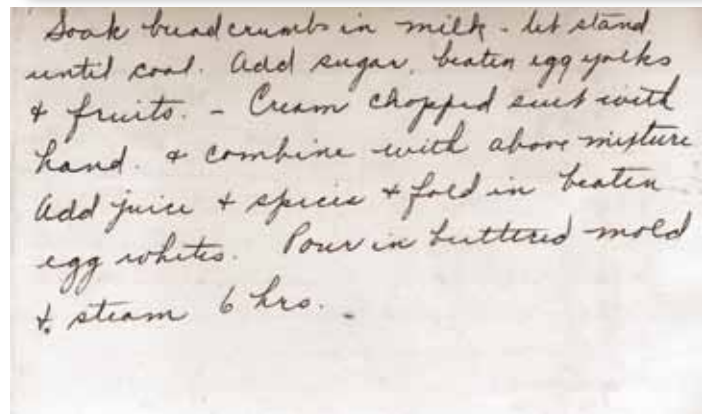 Soak bread crumbs in milk - let stand
until cool. Add sugar, beaten egg yolks
& fruits. - Cream chopped suet with
hand. & combine with above mixture
Add juice & spices & fold in beaten
egg whites. Pour in buttered mold
&. steam 6 hrs. -